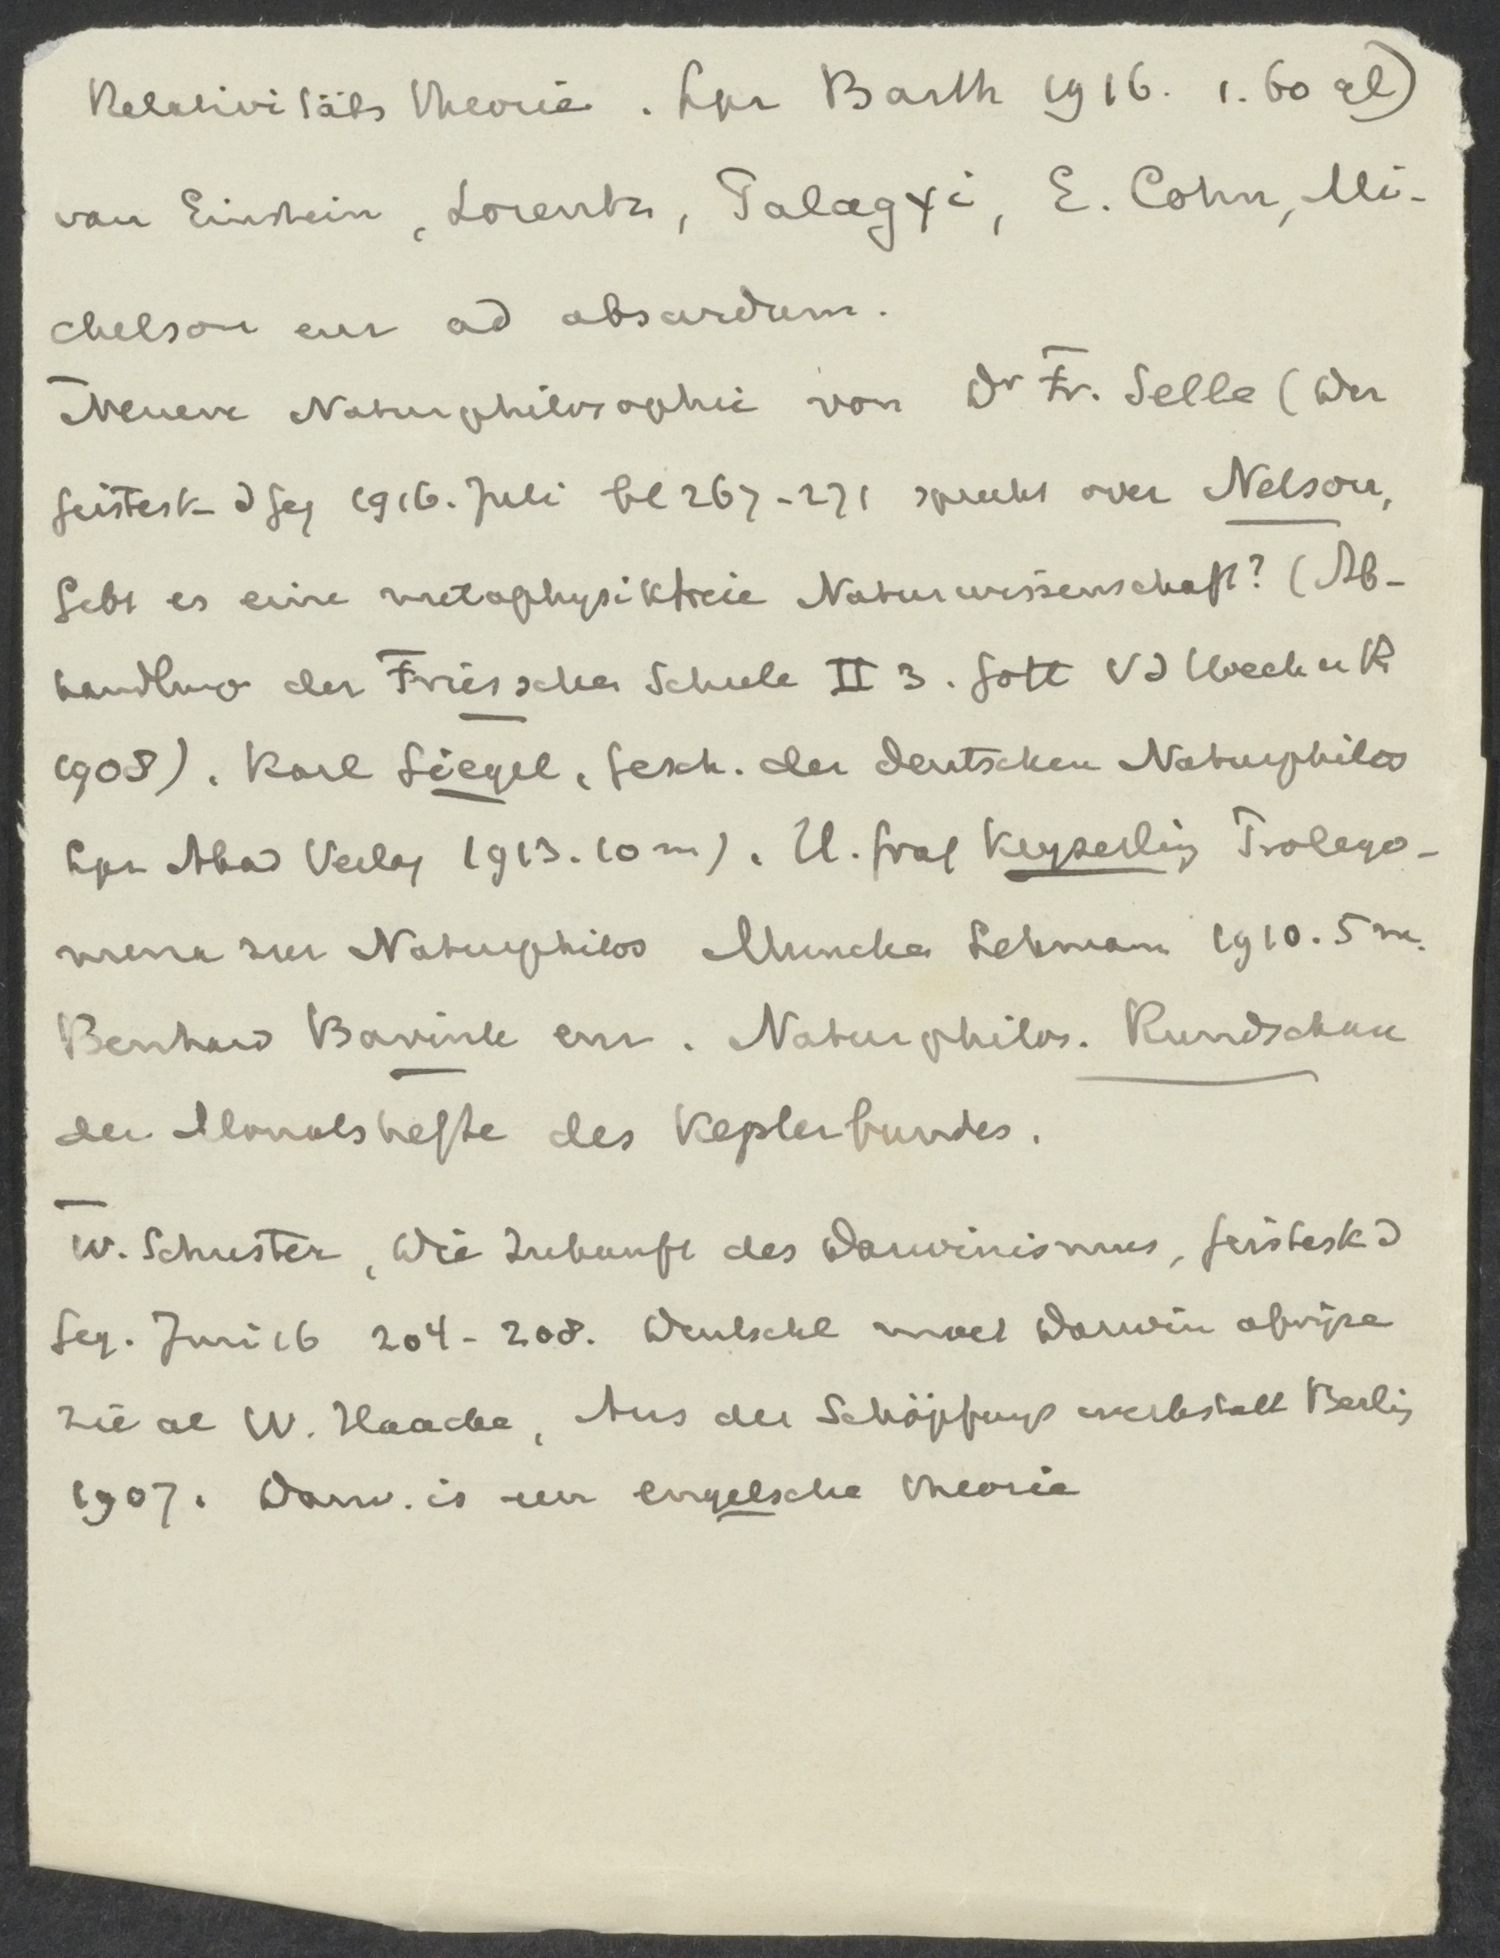 Relativitäts Theorie. Lpz Barth 1916. 1.60 gl)
van Einstein, Lorentz, Palagyi, E. Cohn, Mi-
chelson enz ad absurdum.
Neuere Naturphilosophie von Dr Fr. Selle (Der
Geistesk d Geg 1916. Juli bl 267-271 spreekt over Nelson,
Gebt es eine metaphysikfreie Naturwissenschaft? (Ab-
handlung der Friesschen Schule II 3. Gött Vd Hoeck u R
1908). Karl Siegel, Gesch. der deutschen Naturphilos
Lpz Akad Verlag 1913. 10 m). H. Graf Keyserling Prolego-
mena zur Naturphilos München Lehmann 1910. 5 m.
Bernhard Bavink enz. Naturphilos. Rundschau
der Monatshefte des Keplerbundes.
W. Schuster, Die Zukunft des Darwinismus, Geistesk d
Geg. Juni 16 204-208. Deutschl moet Darwin afwijze
zie al W. Haacke, Aus der Schöpfungswerkstatt Berlin
1907. Darw. is een engelsche theorie